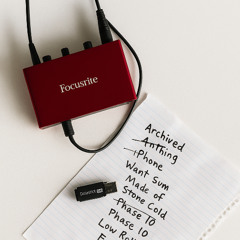 Focusrite
Archived
Anthing
iPhone
Want Sum
Made of
Stone Cold
Phase 10
Phase 10
Low Roll